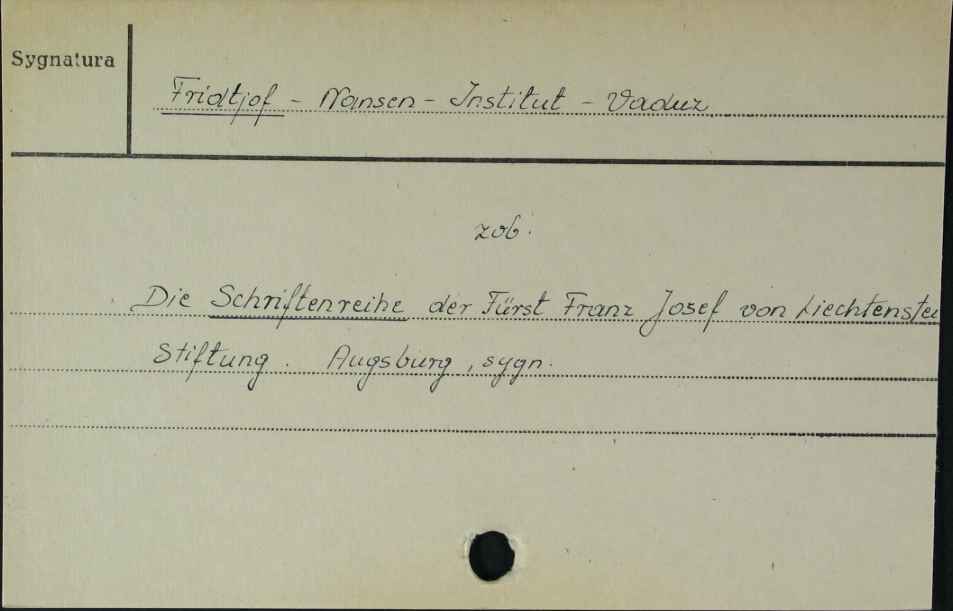 Sygnatura
Fridtjof - Nansen - Institut - Vaduz
zob.
Die Schriftenreihe der Fürst Franz Josef von Liechtenstei
Stiftung. Augsburg, sygn.